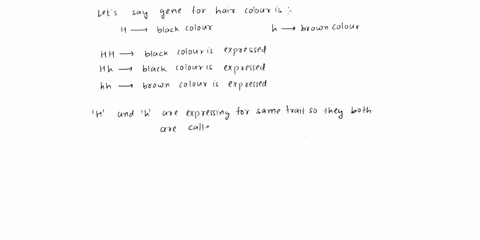 Let's say gene for hair colour is :-
H ⟶ black colour h ⟶ brown colour
HH ⟶ black colour is expressed
Hh ⟶ black colour is expressed
hh ⟶ brown colour is expressed
'H' and 'h' are expressing for same trait so they both
are calle